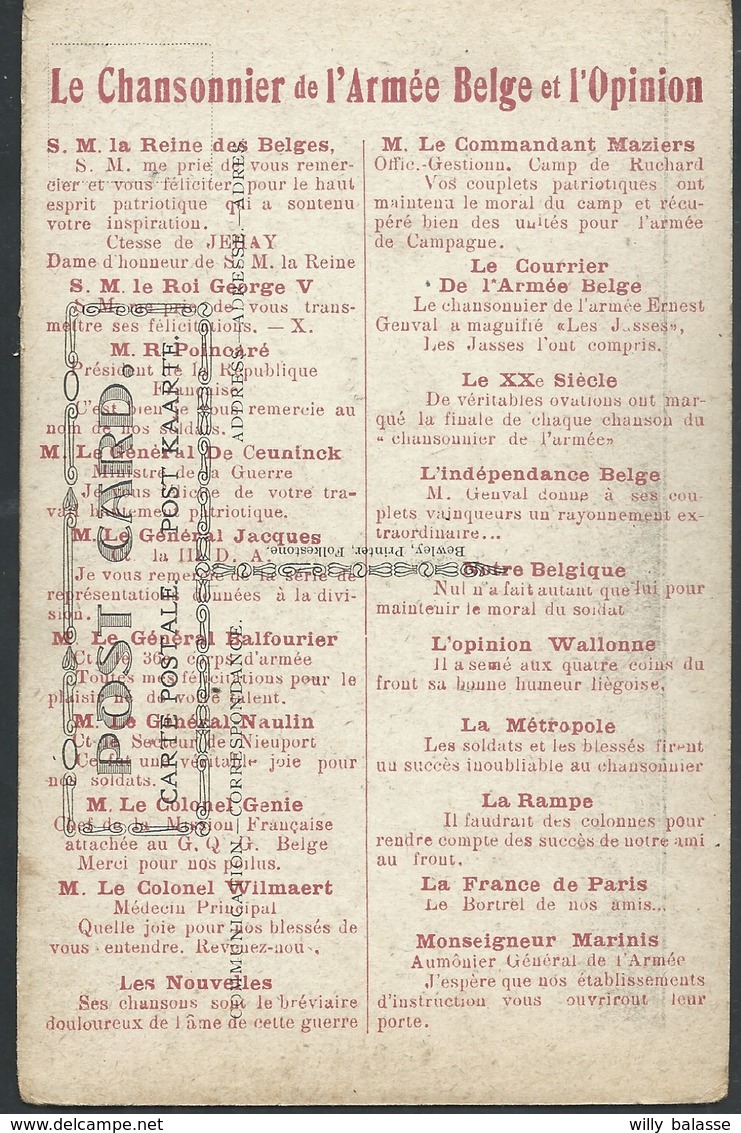 Le Chansonnier de l'Armée Belge et l'Opinion
S. M. la Reine des Belges,
S. M. me prie de vous remer-
cier et vous féliciter pour le haut
esprit patriotique qui a soutenu
votre inspiration.
Ctesse de
Dame d'honneur de S. M. la Reine
S. M. le Roi George V
S. M. me prie de vous trans-
mettre ses félicitations. — X.
M. R. Poincaré
Président de la République
Française
C'est bien je vous remercie au
nom de nos soldats.
M. Le Général De Ceuninck
Ministre de la Guerre
Je vous félicite de votre tra-
vail hautement patriotique.
M. Le Général Jacques
Ct. la III D. A.
Je vous remercie de la série de
représentations données à la divi-
sion.
M. Le Général Balfourier
Ct. le 36e corps d'armée
Toutes mes félicitations pour le
plaisir né de votre talent.
M. Le Général Naulin
Ct le Secteur de Nieuport
Ce fut une véritable joie pour
nos soldats.
M. Le Colonel Genie
Chef de la Mission Française
attachée au G. Q. G. Belge
Merci pour nos poilus.
M. Le Colonel Wilmaert
Médecin Principal
Quelle joie pour nos blessés de
vous entendre. Revenez-nous.
Les Nouvelles
Ses chansons sont le bréviaire
douloureux de l'âme de cette guerre
M. Le Commandant Maziers
Offic.-Gestionn. Camp de Ruchard
Vos couplets patriotiques ont
maintenu le moral du camp et récu-
péré bien des unités pour l'armée
de Campagne.
Le Courrier
De l'Armée Belge
Le chansonnier de l'armée Ernest
Genval a magnifié «Les Jasses»,
Les Jasses l'ont compris.
Le XXe Siècle
De véritables ovations ont mar-
qué la finale de chaque chanson du
“ chansonnier de l'armée»
L'indépendance Belge
M. Genval donne à ses cou-
plets vainqueurs un rayonnement ex-
traordinaire...
Notre Belgique
Nul n'a fait autant que lui pour
maintenir le moral du soldat
L'opinion Wallonne
Il a semé aux quatre coins du
front sa bonne humeur liégoise.
La Métropole
Les soldats et les blessés firent
un succès inoubliable au chansonnier
La Rampe
Il faudrait des colonnes pour
rendre compte des succès de notre ami
au front.
La France de Paris
Le Bortrel de nos amis...
Monseigneur Marinis
Aumônier Général de l'Armée
J'espère que nos établissements
d'instruction vous ouvriront leur
porte.
POST CARD.
CARTE POSTALE. POST KAARTE.
COMMUNICATION.—CORRESPONDANCE.
ADDRESS.—ADRESSE.—ADRES
Bewley, Printer, Folkestone.
willy balasse